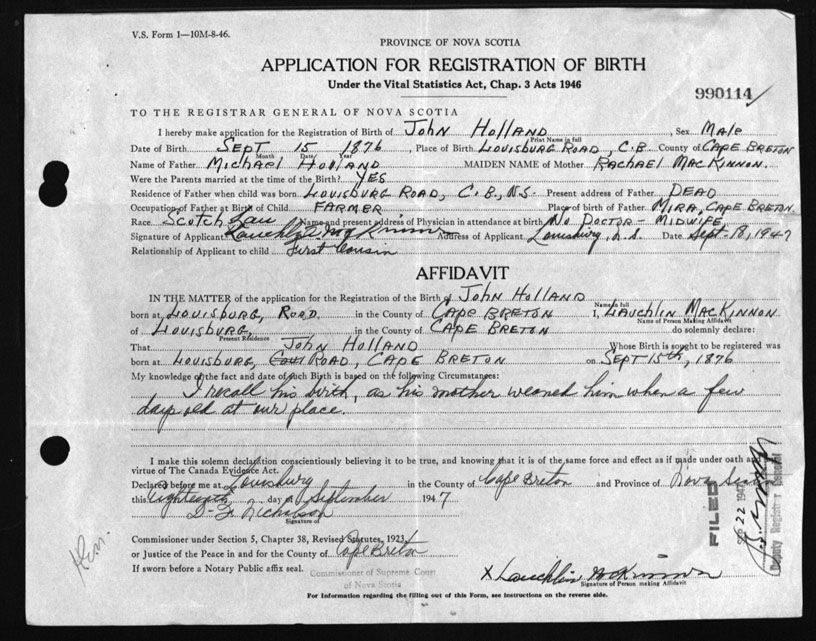 V.S. Form 1—10M-8-46.
PROVINCE OF NOVA SCOTIA
APPLICATION FOR REGISTRATION OF BIRTH
Under the Vital Statistics Act, Chap. 3 Acts 1946
990114
TO THE REGISTRAR GENERAL OF NOVA SCOTIA
I hereby make application for the Registration of Birth of John Holland, Sex Male
Print Name in full
Date of Birth Sept 15 1876, Place of Birth Louisburg Road, C.B. County of Cape Breton
Month Date Year
Name of Father Michael Holland MAIDEN NAME of Mother Rachael MacKinnon.
Were the Parents married at the time of the Birth? Yes
Residence of Father when child was born Louisburg Road, C.B., N.S. Present address of Father Dead
Occupation of Father at Birth of Child Farmer Place of birth of Father Mira, Cape Breton.
Race Scotch Name and present address of Physician in attendance at birth No Doctor - Midwife
Signature of Applicant Lauchlin McKinnon Address of Applicant Louisburg, N.S. Date Sept. 18, 1947
Relationship of Applicant to child first Cousin
AFFIDAVIT
IN THE MATTER of the application for the Registration of the Birth of John Holland
Name in full
born at Louisburg, Road in the County of Cape Breton I, Lauchlin MacKinnon
Name of Person Making Affidavit
of Louisburg, in the County of Cape Breton do solemnly declare:
Present Residence
That John Holland Whose Birth is sought to be registered was
born at Louisburg, Road, Cape Breton on Sept 15th, 1876
My knowledge of the fact and date of such Birth is based on the following Circumstances:
I recall his birth, as his mother weaned him when a few
days old at our place.
I make this solemn declaration conscientiously believing it to be true, and knowing that it is of the same force and effect as if made under oath and by
virtue of The Canada Evidence Act.
Declared before me at Louisburg in the County of Cape Breton and Province of Nova Scotia
this Eighteenth day of September 1947
D. F. Nicholson
Signature of
Commissioner under Section 5, Chapter 38, Revised Statutes, 1923,
or Justice of the Peace in and for the County of Cape Breton
If sworn before a Notary Public affix seal.
Commissioner of Supreme Court
of Nova Scotia
x Lauchlin McKinnon
Signature of Person making Affidavit
For Information regarding the filling out of this Form, see instructions on the reverse side.
FILED
22 194
Deputy Registrar General